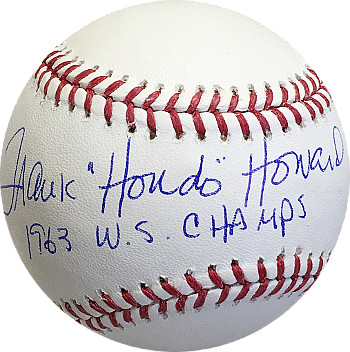 Frank "Hondo" Howard
1963 W.S. CHAMPS